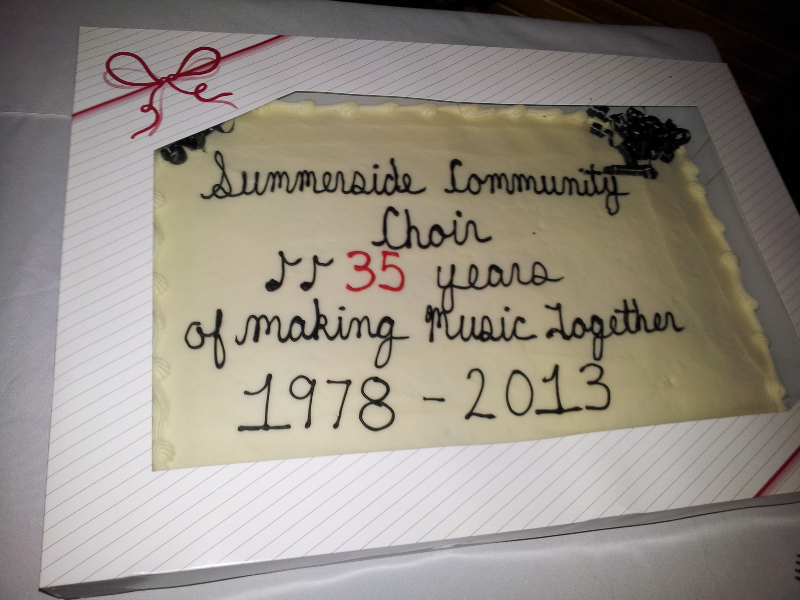 Summerside Community
Choir
♪♪ 35 years
of making Music Together
1978 - 2013